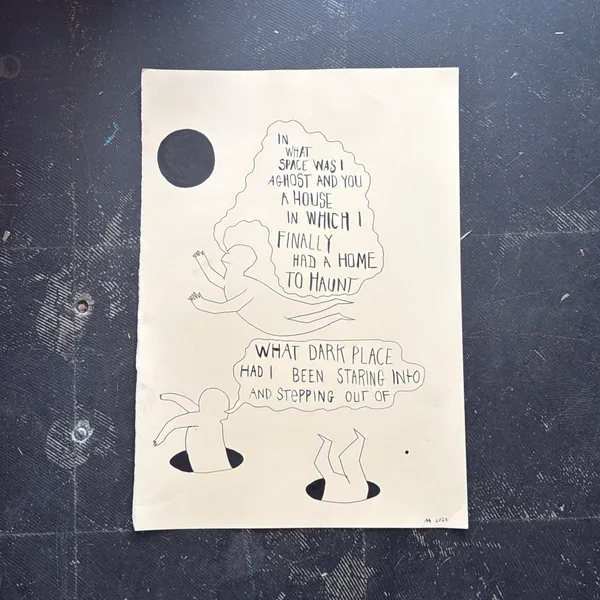 IN
WHAT
SPACE WAS I
A GHOST AND YOU
A HOUSE
IN WHICH I
FINALLY
HAD A HOME
TO HAUNT
WHAT DARK PLACE
HAD I BEEN STARING INTO
AND STEPPING OUT OF